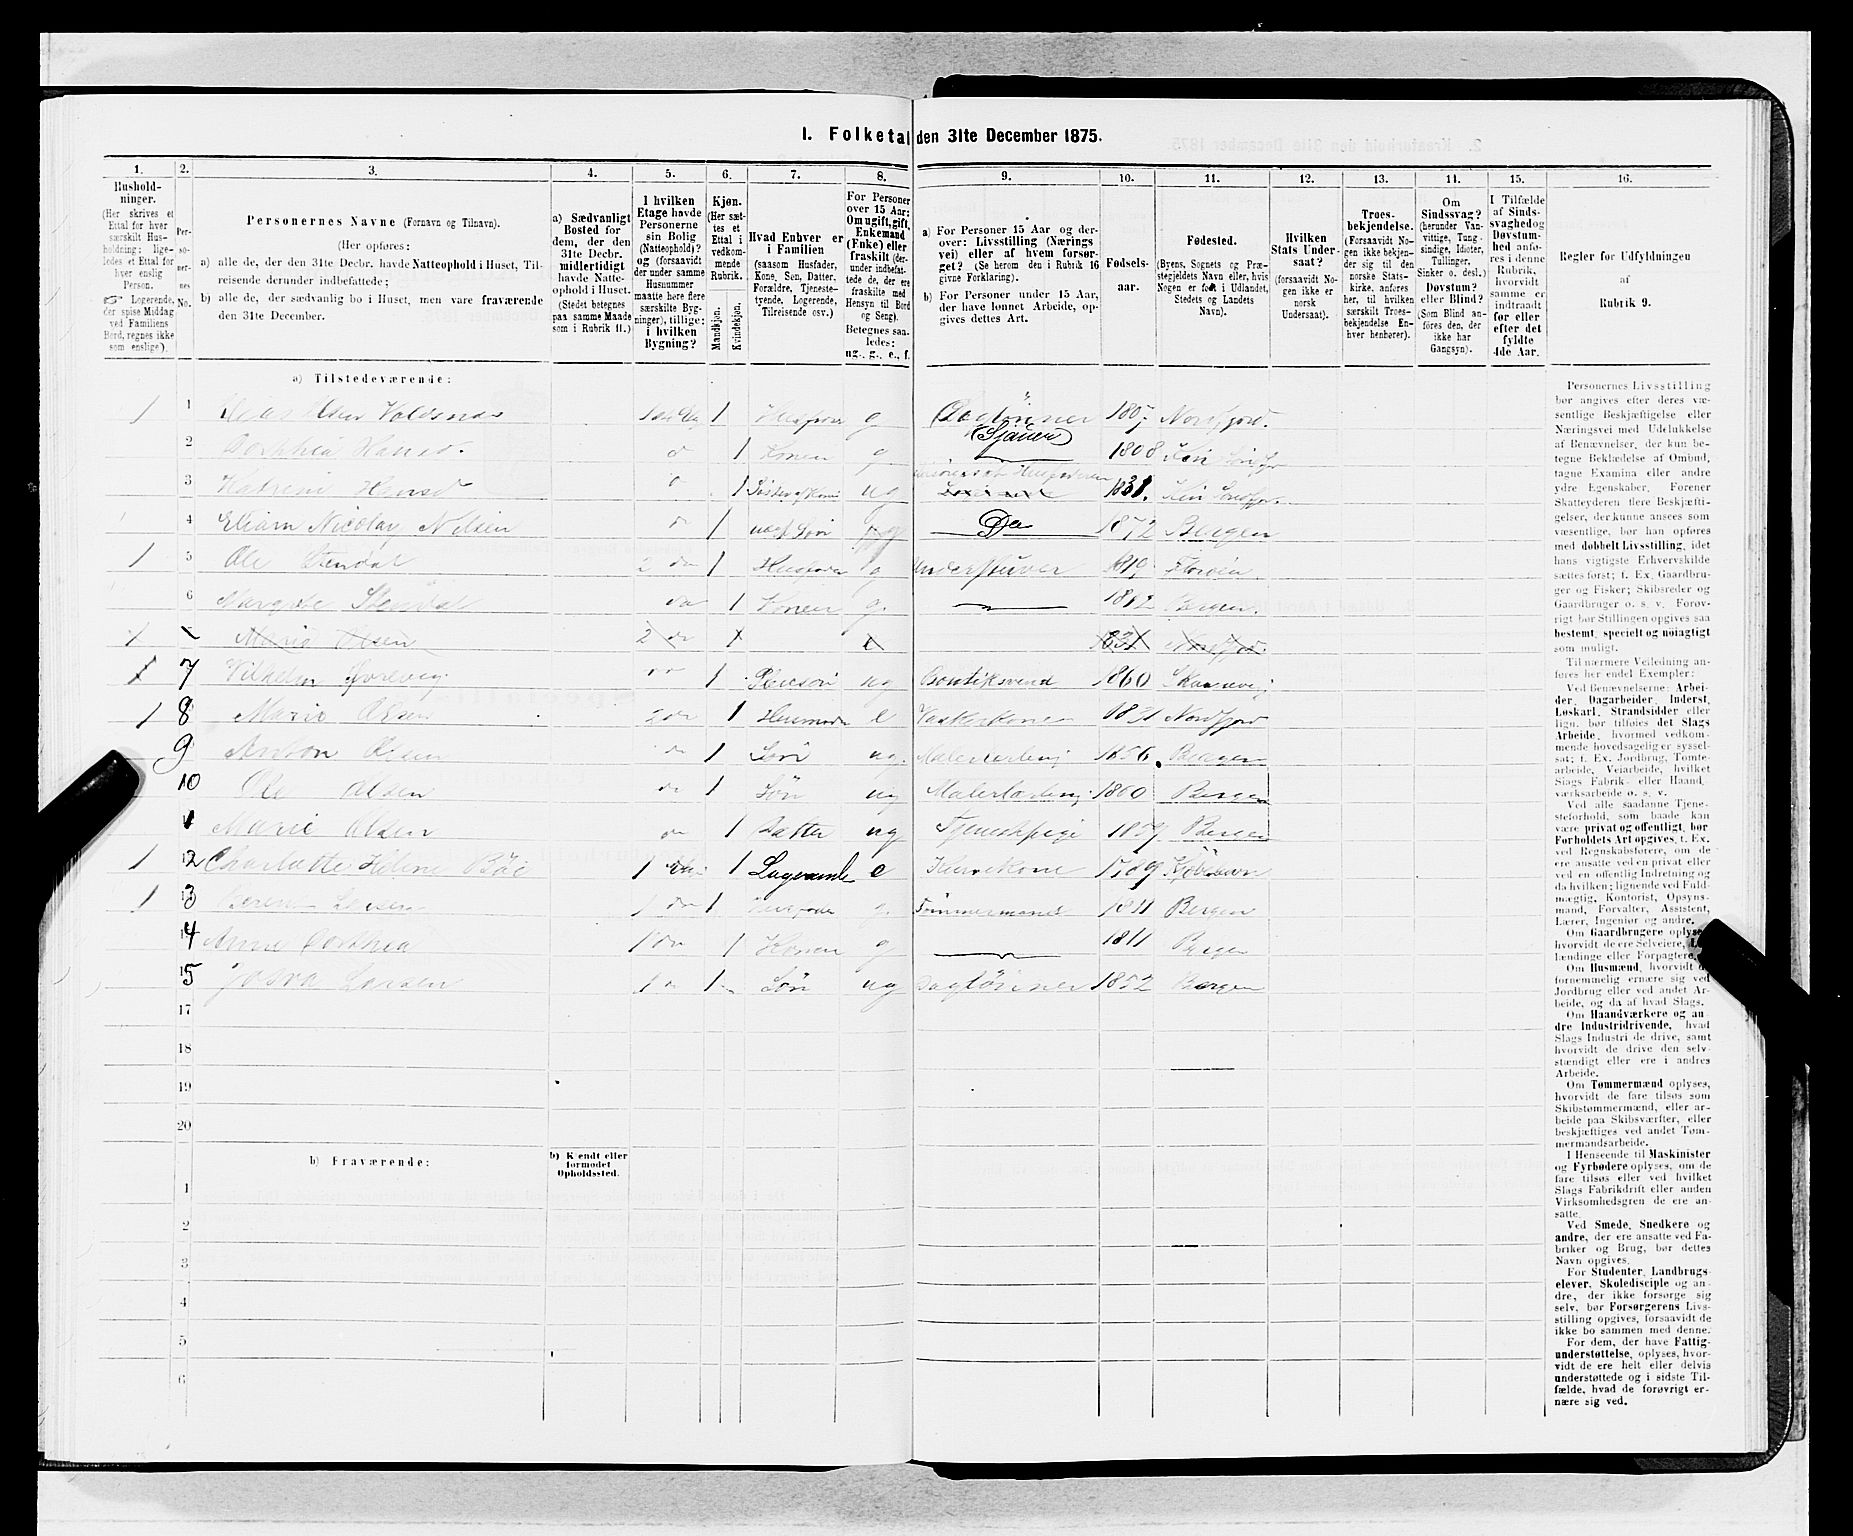 1. Folketal den 31te December 1875.
1. 2. 3. 4. 5. 6. 7. 8. 9. 10. 11. 12. 13. 14. 15. 16.
Husholdninger.
(Her skrives et Ettal for hver særskilt Husholdning; ligeledes et Ettal for hver enslig Person.
Logerende, der spise Middag ved Familiens Bord, regnes ikke som enslige).
Personernes No.
Personernes Navne (Fornavn og Tilnavn).
(Her opføres:
a) alle de, der den 31te Decbr. havde Natteophold i Huset, Tilreisende derunder indbefattede;
b) alle de, der sædvanlig bo i Huset, men vare fraværende den 31te December.
a) Sædvanligt Bosted for dem, der den 31te Decbr. midlertidigt havde Natteophold i Huset.
(Stedet betegnes paa samme Maade som i Rubrik 11.)
I hvilken Etage havde Personerne sin Bolig (Natteophold)? og (forsaavidt der under samme Husnummer maatte høre flere særskilte Bygninger), tillige: i hvilken Bygning?
Kjøn.
(Her sættes et Ettal i vedkommende Rubrik.
Mandkjøn. Kvindekjøn.
Hvad Enhver er i Familien
(saasom Husfader, Kone, Søn, Datter, Forældre, Tjenestetyende, Logerende, Tilreisende osv.)
For Personer over 15 Aar: Om ugift, gift, Enkemand (Enke) eller fraskilt (derunder indbefattede de, der ere fraskilte med Hensyn til Bord og Seng).
Betegnes saaledes: ug., g., e., f.
a) For Personer 15 Aar og derover: Livsstilling (Næringsvei) eller af hvem forsørget? (Se herom den i Rubrik 16 givne Forklaring).
b) For Personer under 15 Aar, der have lønnet Arbeide, opgives dettes Art.
Fødselsaar.
Fødested.
(Byens, Sognets og Præstegjeldets Navn eller, hvis Nogen er født i Udlandet, Stedets og Landets Navn).
Hvilken Stats Undersaat?
(forsaavidt Nogen ikke er norsk Undersaat).
Troesbekjendelse.
(Forsaavidt Nogen ikke bekjender sig til den norske Statskirke, anføres her, til hvilken særskilt Troesbekjendelse Enhver henhører).
Om Sindssvag? (herunder Vanvittige, Tungsindige, Idioter, Tullinger, Sinker o. desl.) Døvstum? eller Blind? (Som Blind anføres den, der ikke har Gangsyn).
I Tilfælde af Sindssvaghed og Døvstumhed anføres i denne Rubrik, hvorvidt samme er indtraadt før eller efter det fyldte 4de Aar.
Regler for Udfyldningen af Rubrik 9.
a) Tilstedeværende:
1 1 g Dagløner 1807 Nordfjord.
(Sjauer)
2 1 Konen g 1808
3 Hansd 1 ug 1831.
4 Eliam Nicolay Nilsen 1 Do 1872 Bergen
1 5 Ole Stendal 2 do 1 Husfader g 1819
6 Margrete Stendal do 1 Konen g. Bergen.
Marie Olsen 2 do 1831 Nordfjord
7 Vilhelm 1 ug 1860
1 8 Marie Olsen 2 do 1 Husmoder e Vaskerkone 1831 Nordfjord
9 Anton Olsen do 1 Søn ug. Malerlærling 1856 Bergen
10 Ole Olsen do 1 Søn ug Malerlærling 1860 Bergen
11 Marie Olsen do 1 Datter ug Tjenestpige 1859 Bergen
1 12 Charlotte Heline Böe 1 1 e 1789
1 13 Berent Larsen 1 do 1 Husfader g. Tömmermand 1811 Bergen
14 Anne Dorthea 1 do 1 Konen g 1811 Bergen
15 Larsen 1 do 1 Søn ug Daglönner 1852 Bergen
17
18
19
20
b) Fraværende:
b) Kjendt eller formodet Opholdssted.
1
2
3
4
5
6
Personernes Livsstilling
bør angives efter deres væ-
sentlige Beskjæftigelse eller
Næringsvei med Udelukkelse
af Benævnelser, der kun be-
tegne Beklædelse af Ombud,
tagne Examina eller andre
ydre Egenskaber. Forener
Skatteyderen flere Beskjæfti-
gelser, der kunne ansees som
væsentlige, bør han opføres
med dobbelt Livsstilling, idet
hans vigtigste Erhvervskilde
sættes først; f. Ex. Gaardbru-
ger og Fisker; Skibsreder og
Gaardbruger o. s. v. Forøv-
rigt bør Stillingen opgives saa
bestemt, specielt og nøiagtigt
som muligt.
Til nærmere Veiledning an-
føres her endel Exempler:
Ved Benævnelserne: Arbei-
der, Dagarbeider, Inderst,
Løskarl, Strandsidder eller
lign. bør tilføies det Slags
Arbeide, hvormed vedkom-
mende hovedsagelig er syssel-
sat; f. Ex. Jordbrug, Tomte-
arbeide, Veiarbeide, hvilket
Slags Fabrik- eller Haand-
værksarbeide o. s. v.
Ved alle saadanne Tjene-
steforhold, som baade kan
være privat og offentligt, bør
Forholdets Art opgives, t. Ex.
ved Regnskabsførere, om de
ere ansatte ved en privat eller
ved en offentlig Indretning og
da hvilken; lignende ved Fuld-
mægtig, Kontorist, Opsyns-
mand, Forvalter, Assistent,
Lærer, Ingeniør og andre.
Om Gaardbrugere oplyses,
hvorvidt de ere Selveiere, 
lændinge eller Forpagtere.
Om Husmænd, hvorvidt de
fornemmelig ernære sig ved
Jordbrug eller ved andet Ar-
beide, og da af hvad Slags.
Om Haandværkere og an-
dre Industridrivende, hvad
Slags Industri de drive, samt
hvorvidt de drive den selv-
stændigt eller ere i andres
Arbeide.
Om Tømmermænd oplyses,
hvorvidt de fare tilsøs som
Skibstømmermænd, eller ar-
beide paa Skibsværfter, eller
beskjæftiges ved andet Tøm-
mermandsarbeide.
I Henseende til Maskinister
og Fyrbødere oplyses, om de
fare tilsøs eller ved hvilket
Slags Fabrikdrift eller anden
Virksomhedsgren de ere an-
satte.
Ved Smede, Snedkere og
andre, der ere ansatte ved Fa-
briker og Brug, bør dettes
Navn opgives.
For Studenter, Landbrugs-
elever, Skoledisciple og an-
dre, der ikke forsørge sig
selv, bør Forsørgerens Livs-
stilling opgives, forsaavidt de
ikke bo sammen med denne.
For dem, der have Fattig-
understøttelse, oplyses, hvor-
vidt de ere helt eller delvis
understøttede og i sidste Til-
fælde, hvad de forøvrigt er-
nære sig ved.